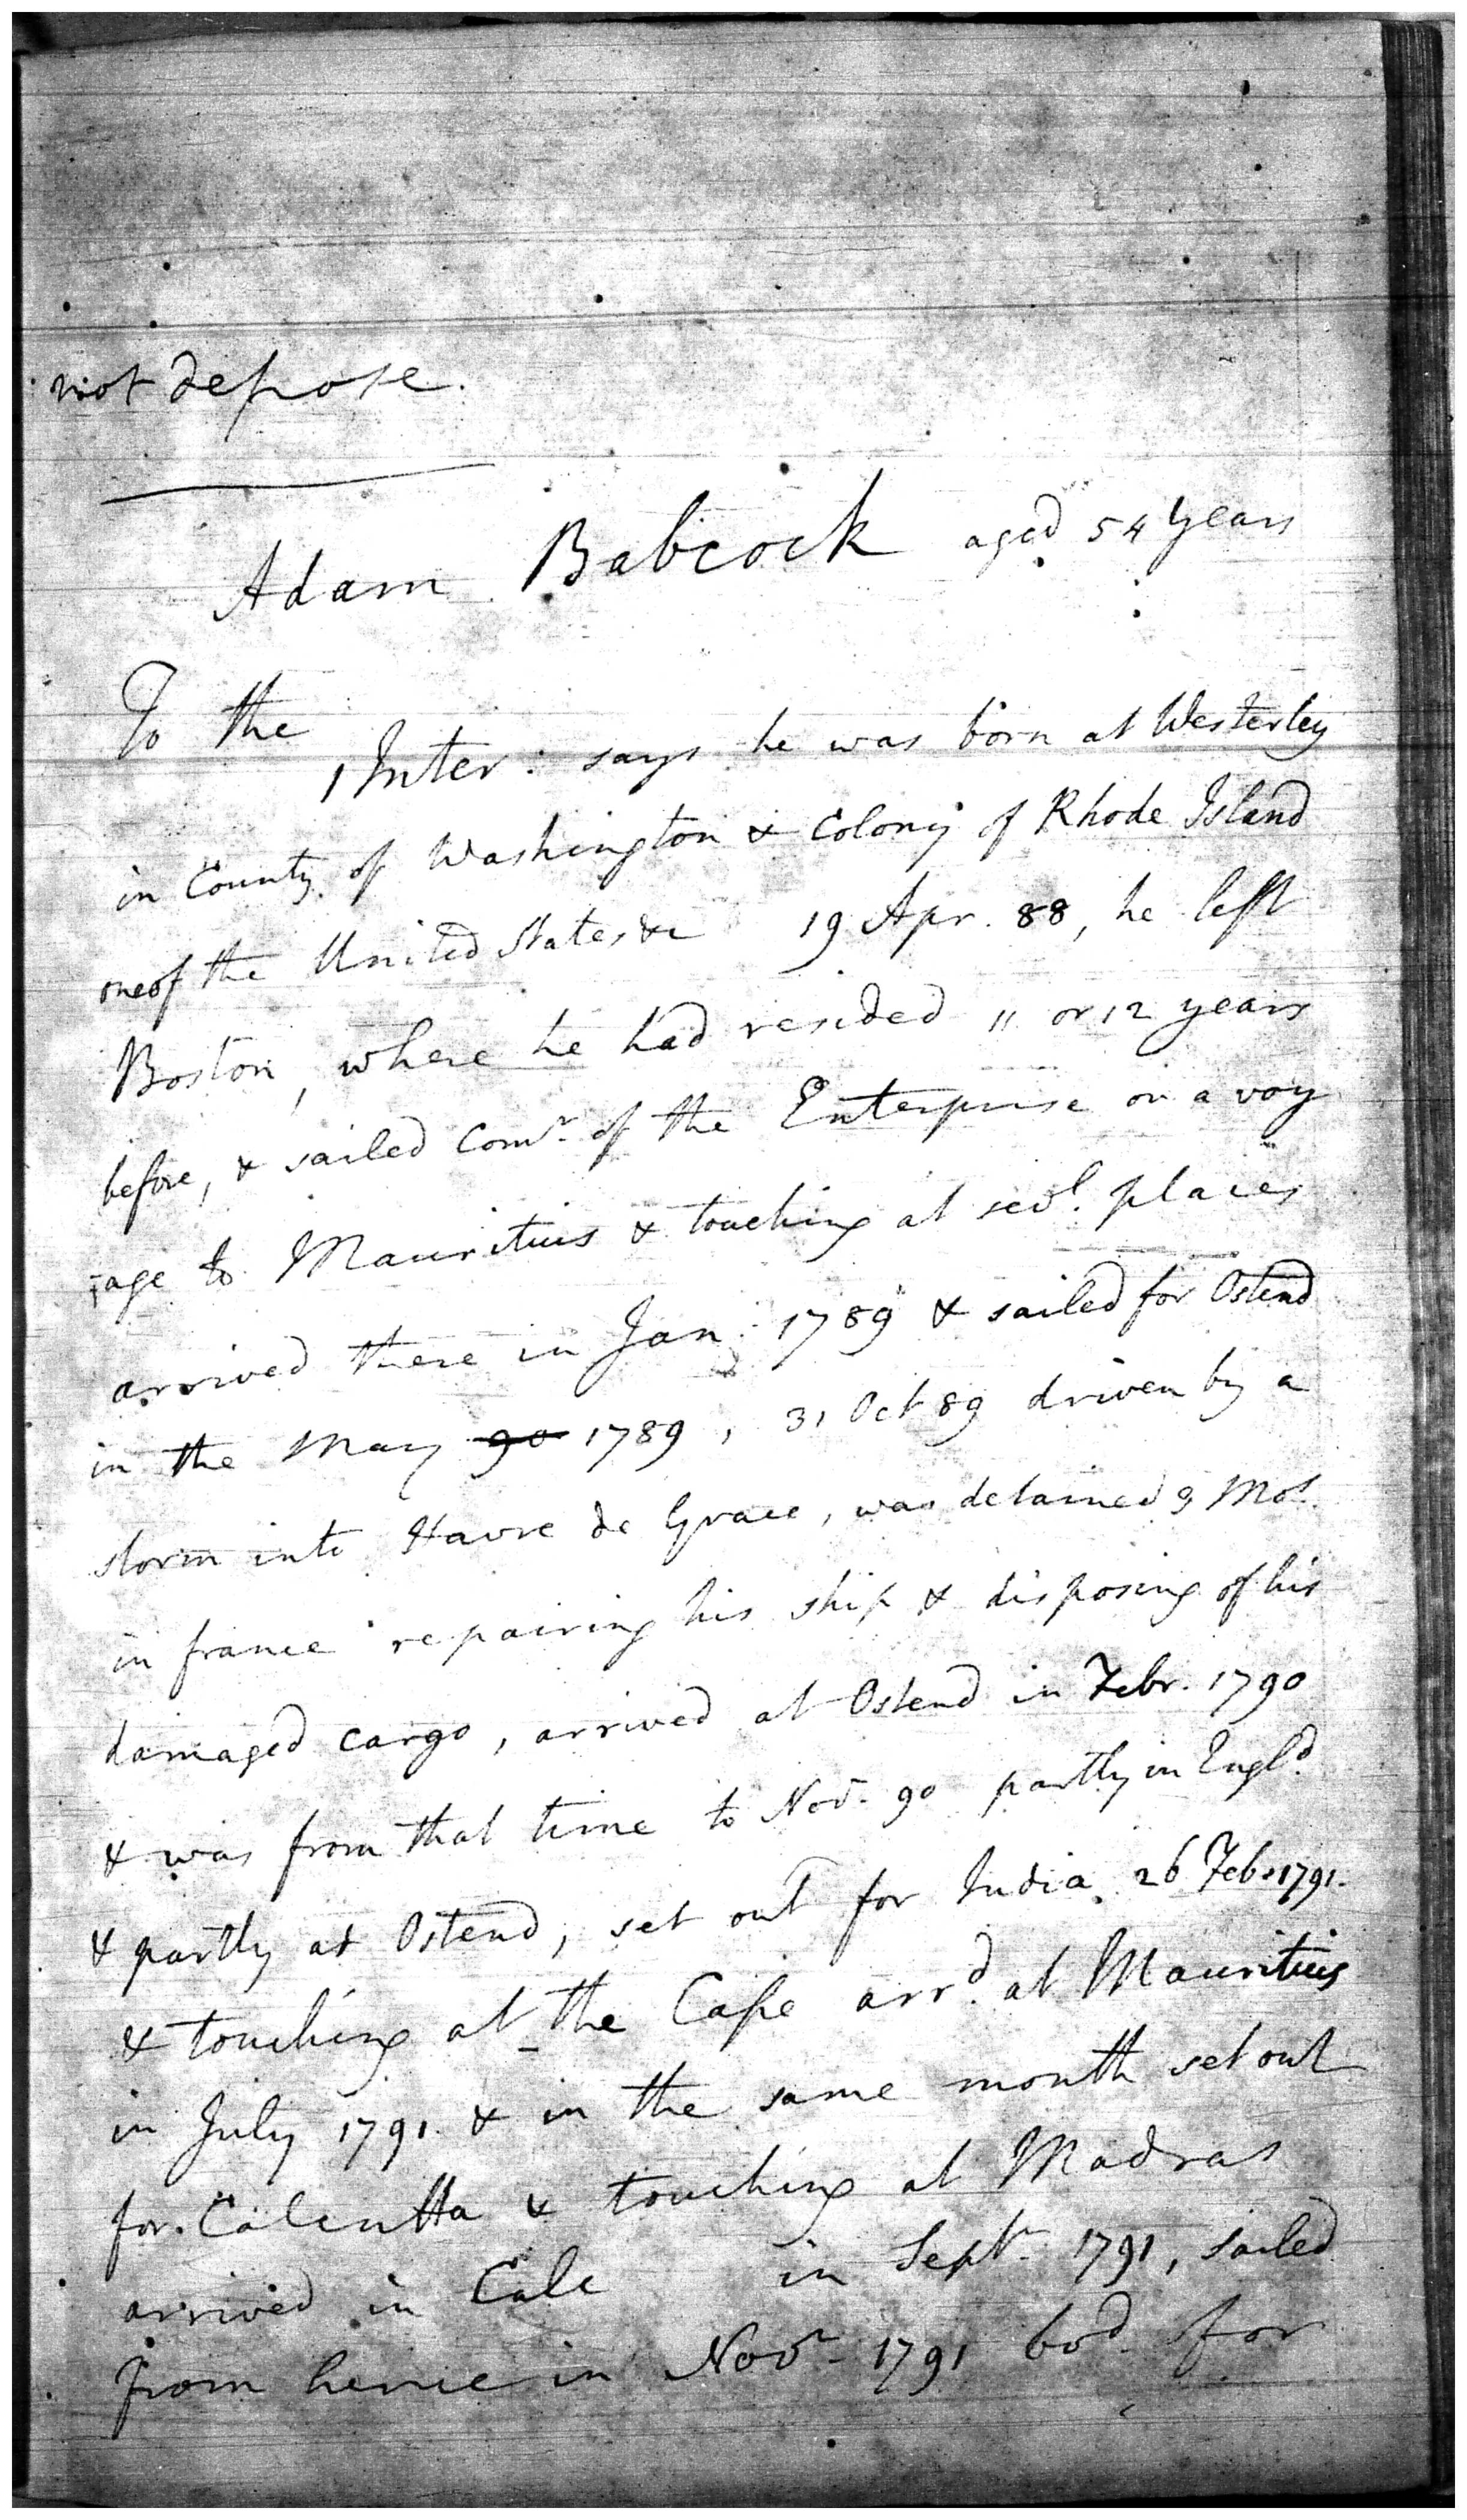 not depose.
Adam Babcock aged 54 years
To the
1 Inter: says he was born at Westerley
in County of Washington & Colony of Rhode Island
one of the United States &c 19 Apr. 88, he left
Boston, where he had resided 11 or 12 years
before, & sailed Comr. of the Enterprise on a voy
-age to Mauritius & touching at sevl. places
arrived there in Jan: 1789 & sailed for Ostend
in the May 90 1789, 31 Oct 89 driven by a
storm into Havre de Grace, was detained 3 Mos.
in france repairing his ship & disposing of his
damaged cargo, arrived at Ostend in Febr. 1790
& was from that time to Nov. 90 partly in Engld.
& partly at Ostend, set out for India 26 Feb. 1791.
& touching at the Cape arrd. at Mauritius
in July 1791. & in the same month set out
for Calcutta & touching at Madras
arrived in Calc in Septr. 1791, sailed
from hence in Novr. 1791 bod. for